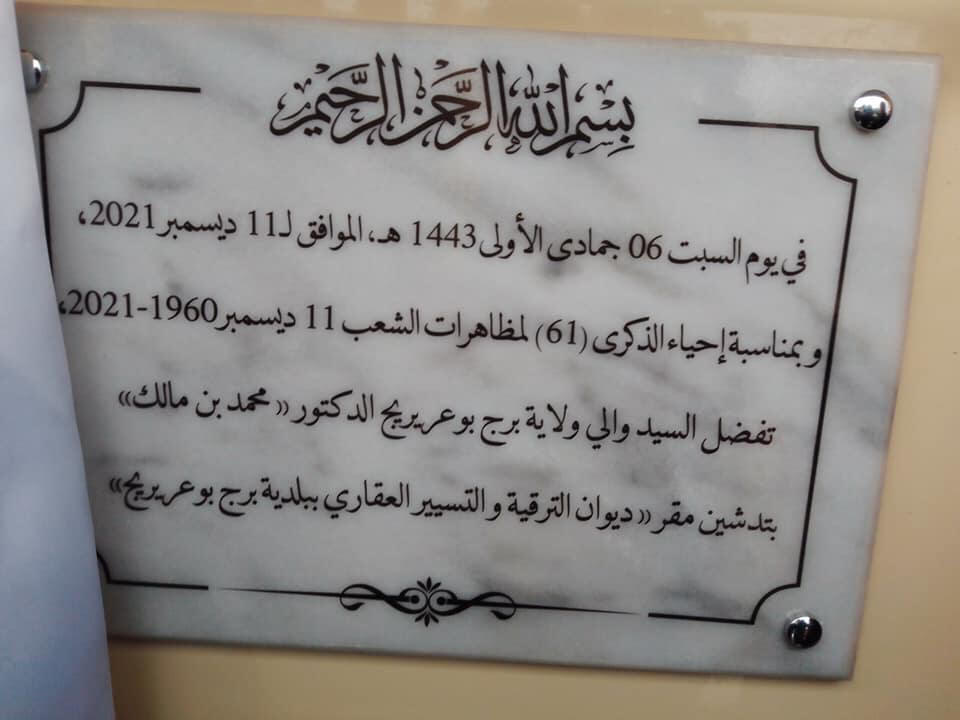 بِسْمِ اللهِ الرَّحْمٰنِ الرَّحِيْمِ
في يوم السبت 06 جمادى الأولى 1443 هـ، الموافق لـ 11 ديسمبر 2021،
و بمناسبة إحياء الذكرى (61) لمظاهرات الشعب 11 ديسمبر 1960-2021،
تفضل السيد والي ولاية برج بوعريريج الدكتور «محمد بن مالك»
بتدشين مقر «ديوان الترقية و التسيير العقاري ببلدية برج بوعريريج»